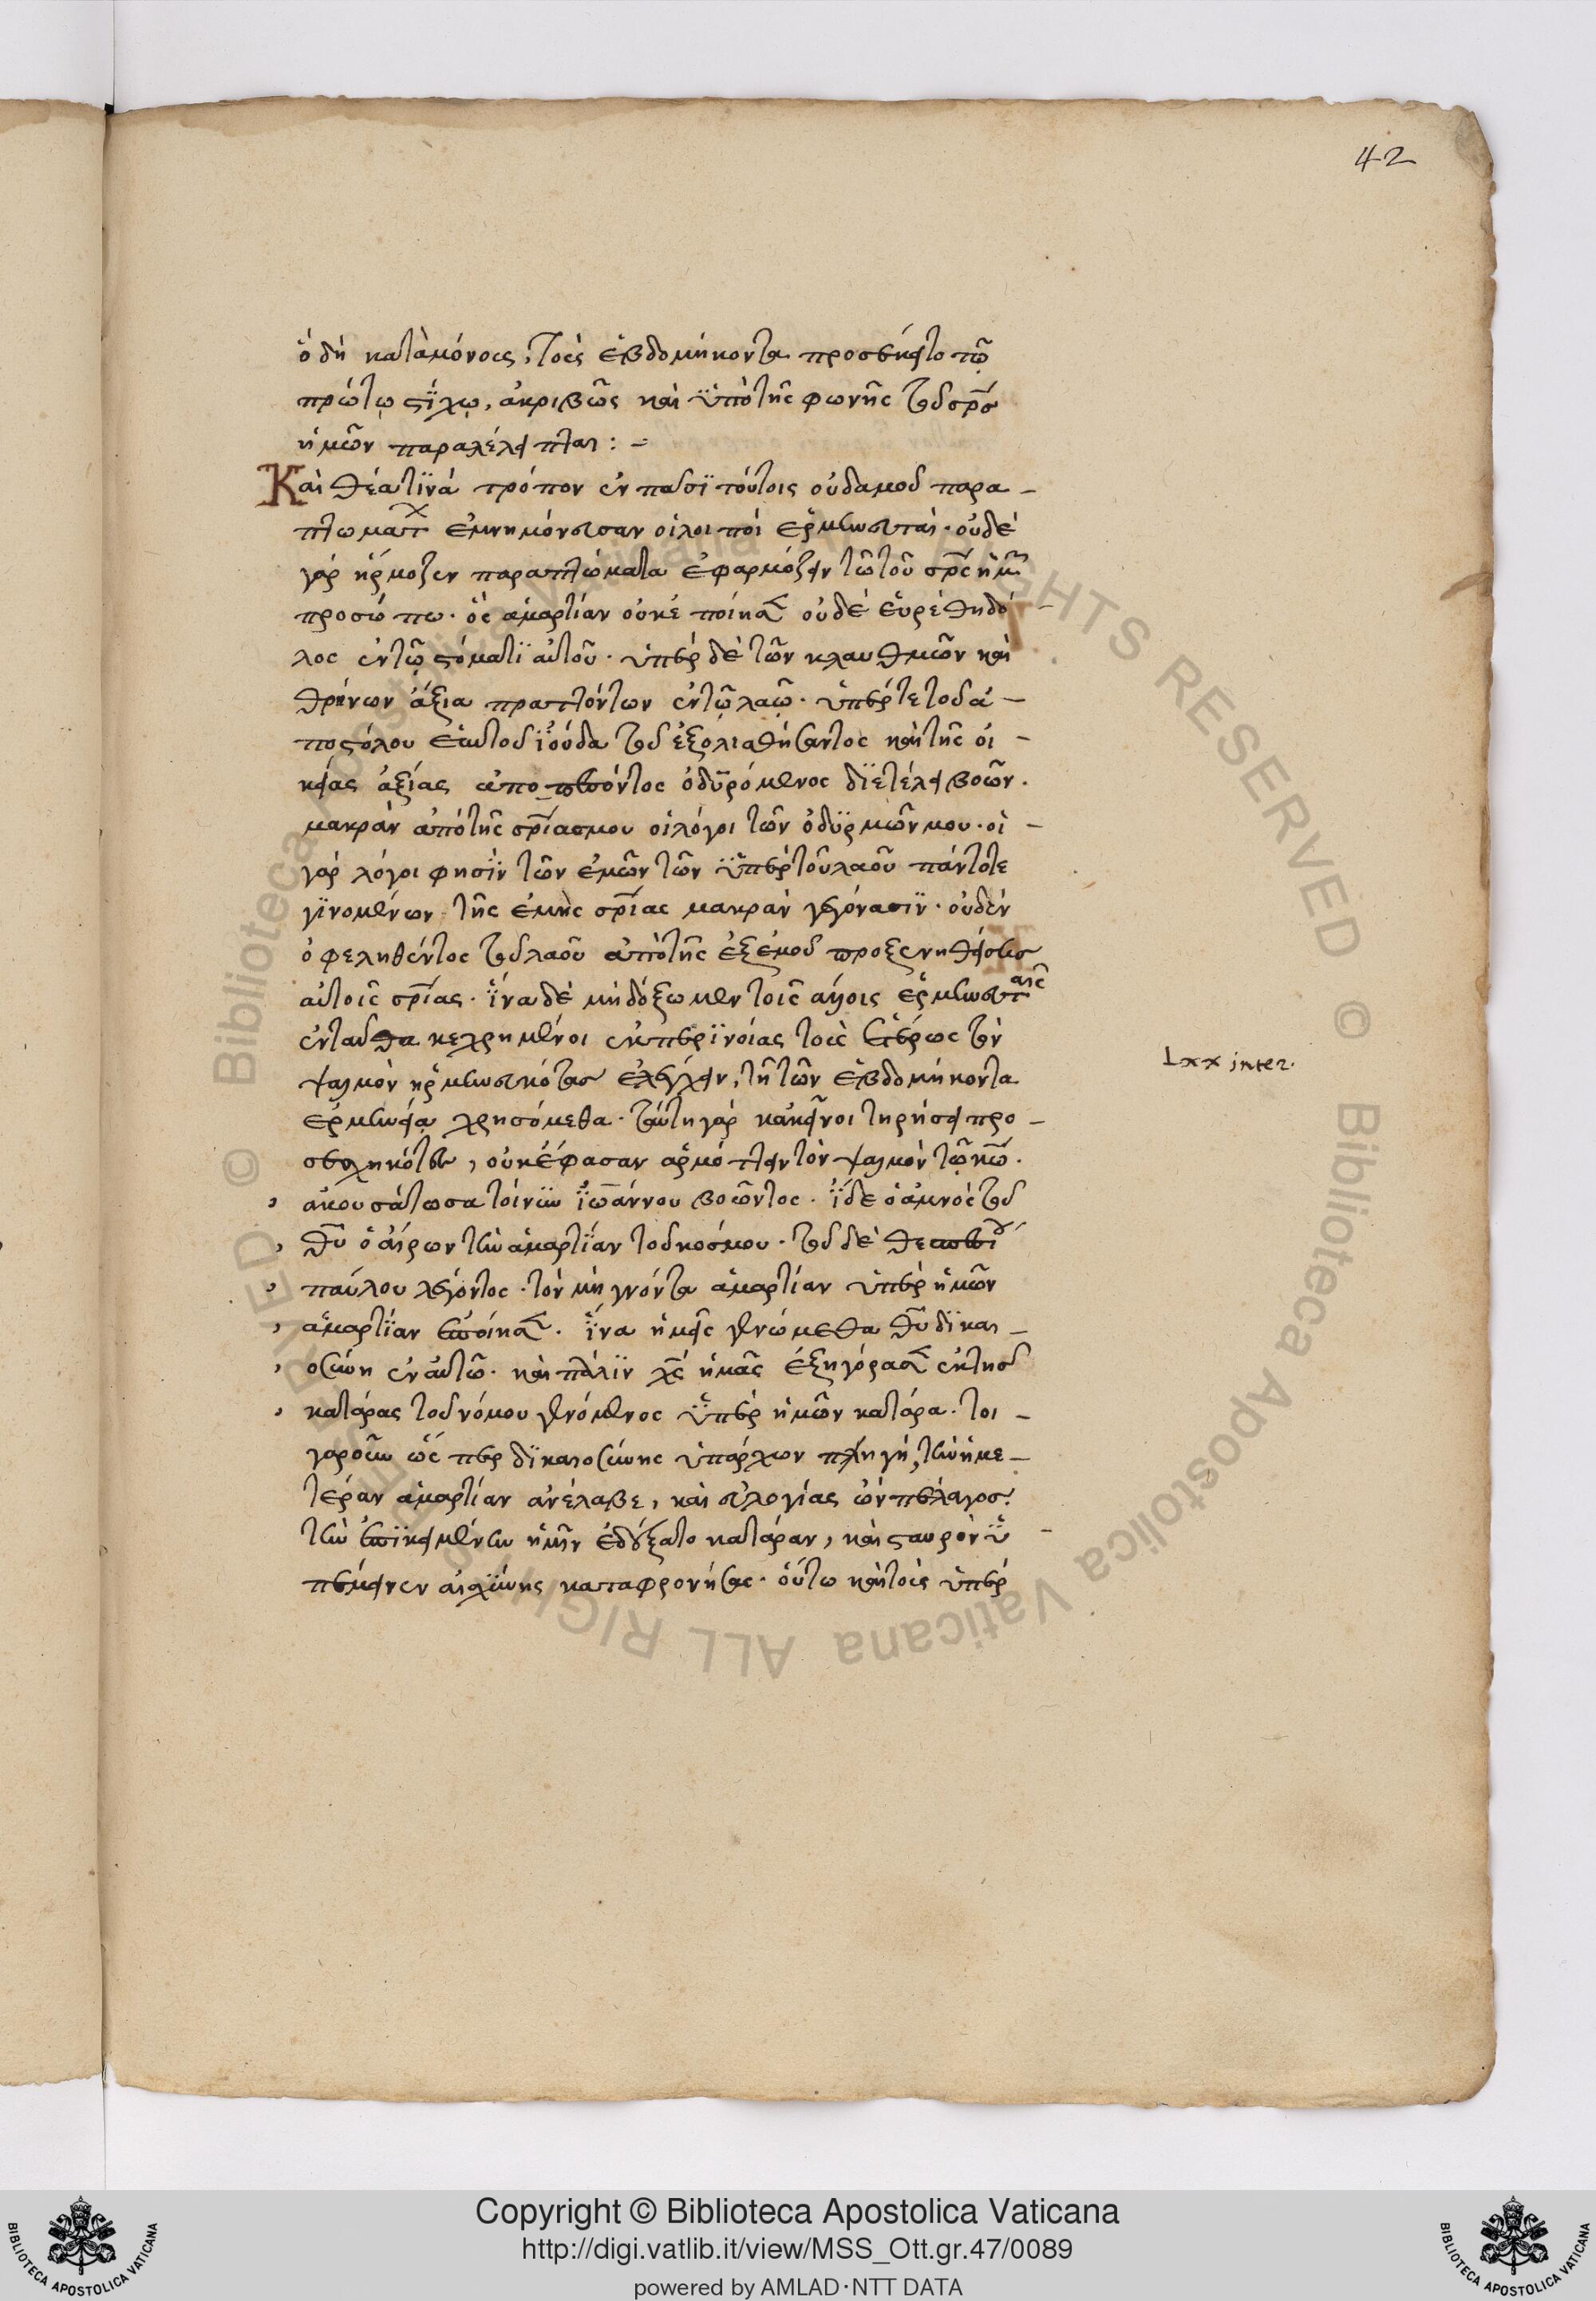 42
ὁ δὴ κατὰ μόνοις, τοῖς ἑβδομήκοντα προσέκειτο τῷ
πρώτῳ στίχῳ, ἀκριβῶς καὶ ὑπὸ τῆς φωνῆς τοῦ σρ̅σ
ἡμῶν παραλέλειπται : ~
Καὶ θέα τινὰ τρόπον ἐν πᾶσι τούτοις οὐδαμοῦ παρα-
πτωμάτ ἐμνημόνευσαν οἱ λοιποὶ ἑρμηνευταί· οὐδὲ
γὰρ ἥρμοζεν παραπτώματα ἐφαρμόζειν τῷ τοῦ σρ̅ς ἡμ
προσώπω· ὃς ἁμαρτίαν οὐκ ἐποίησεν οὐδὲ εὑρέθη δό-
λος ἐν τῷ στόματι αὐτοῦ· ὑπὲρ δὲ τῶν κλαυθμῶν καὶ
θρήνων ἄξια πραττόντων ἐν τῷ λαῷ· ὑπέρ τε τοῦ ἀ-
ποστόλου ἑαυτοῦ ἰούδα τοῦ ἐξολισθήσαντος καὶ τῆς οἰ-
κείας ἀξίας ἀποπεσόντος ὀδυρόμενος διετέλει βοῶν.
μακρὰν ἀπὸ τῆς σρ̅ίας μου οἱ λόγοι τῶν ὀδυρμῶν μου· οἱ-
γὰρ λόγοι φησὶν τῶν ἐμῶν τῶν ὑπὲρ τοῦ λαοῦ πάντοτε
γινομένων τῆς ἐμῆς σρ̅ίας μακρὰν γεγόνασιν· οὐδὲν
ὀφεληθέντος τοῦ λαοῦ ἀπὸ τῆς ἐξ ἐμοῦ προξενηθείσης
αὐτοῖς σρ̅ίας· ἵνα δὲ μὴ δόξωμεν τοῖς ἄλλοις ἑρμηνευταῖς
ἐνταῦθα κεχρημένοι ἐκ περινοίας τοὺς ἑτέρως τὸν
ψαλμὸν ἡρμηνευκότας ἐλέγχειν, τῇ τῶν ἑβδομήκοντα
ἑρμηνείᾳ χρησόμεθα· ταύτη γὰρ κἀκεῖνοι τηρήσει προ-
σεσχηκότες, οὐκ ἔφασαν ἁρμόττειν τὸν ψαλμὸν τῷ κ̅ω̅.
ἀκουσάτωσα τοίνυν ἰωάννου βοῶντος· ἴδε ὁ ἀμνὸς τοῦ
θ̅υ̅ ὁ αἴρων τὴν ἁμαρτίαν τοῦ κόσμου· τοῦ δὲ θεσπεσί
παύλου λέγοντος· τὸν μὴ γνόντα ἁμαρτίαν ὑπὲρ ἡμῶν
ἁμαρτίαν ἐποίησεν· ἵνα ἡμεῖς γενώμεθα θ̅υ̅ δικαι-
οσύνη ἐν αὐτῶ· καὶ πάλιν χ̅ς̅ ἡμᾶς ἐξηγόρασεν ἐκ τῆς
κατάρας τοῦ νόμου γενόμενος ὑπὲρ ἡμῶν κατάρα· τοι-
γαροῦν ὥσπερ δικαιοσύνης ὑπάρχων πληγή, τὴν ἡμε-
τέραν ἁμαρτίαν ἀνέλαβε, καὶ εὐλογίας ὢν πέλαγος
τὴν ἐπικειμένην ἡμῖν ἐδέξατο κατάραν, καὶ σταυρὸν ὑ-
πέμεινεν αἰσχύνης καταφρονήσας· οὕτω καὶ τοὺς ὑπὲρ
Lxx inter.
Copyright © Biblioteca Apostolica Vaticana
http://digi.vatlib.it/view/MSS_Ott.gr.47/0089
powered by AMLAD·NTT DATA